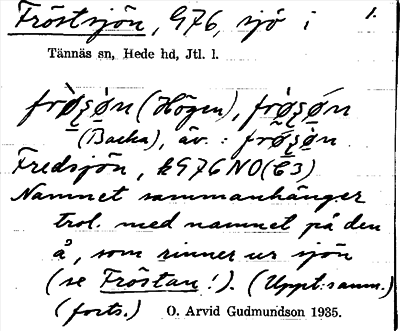 Fröstsjön, G976, sjö i 1.
Tännäs sn, Hede hd, Jtl. l.
(Högen),
(Backa), äv. :
Fredsjön, k G976 NO (E3)
Namnet sammanhänger
trol. med namnet på den
å, som rinner ur sjön
(se Fröstan!). (Uppt:samm.)
(forts.) O. Arvid Gudmundson 1935.